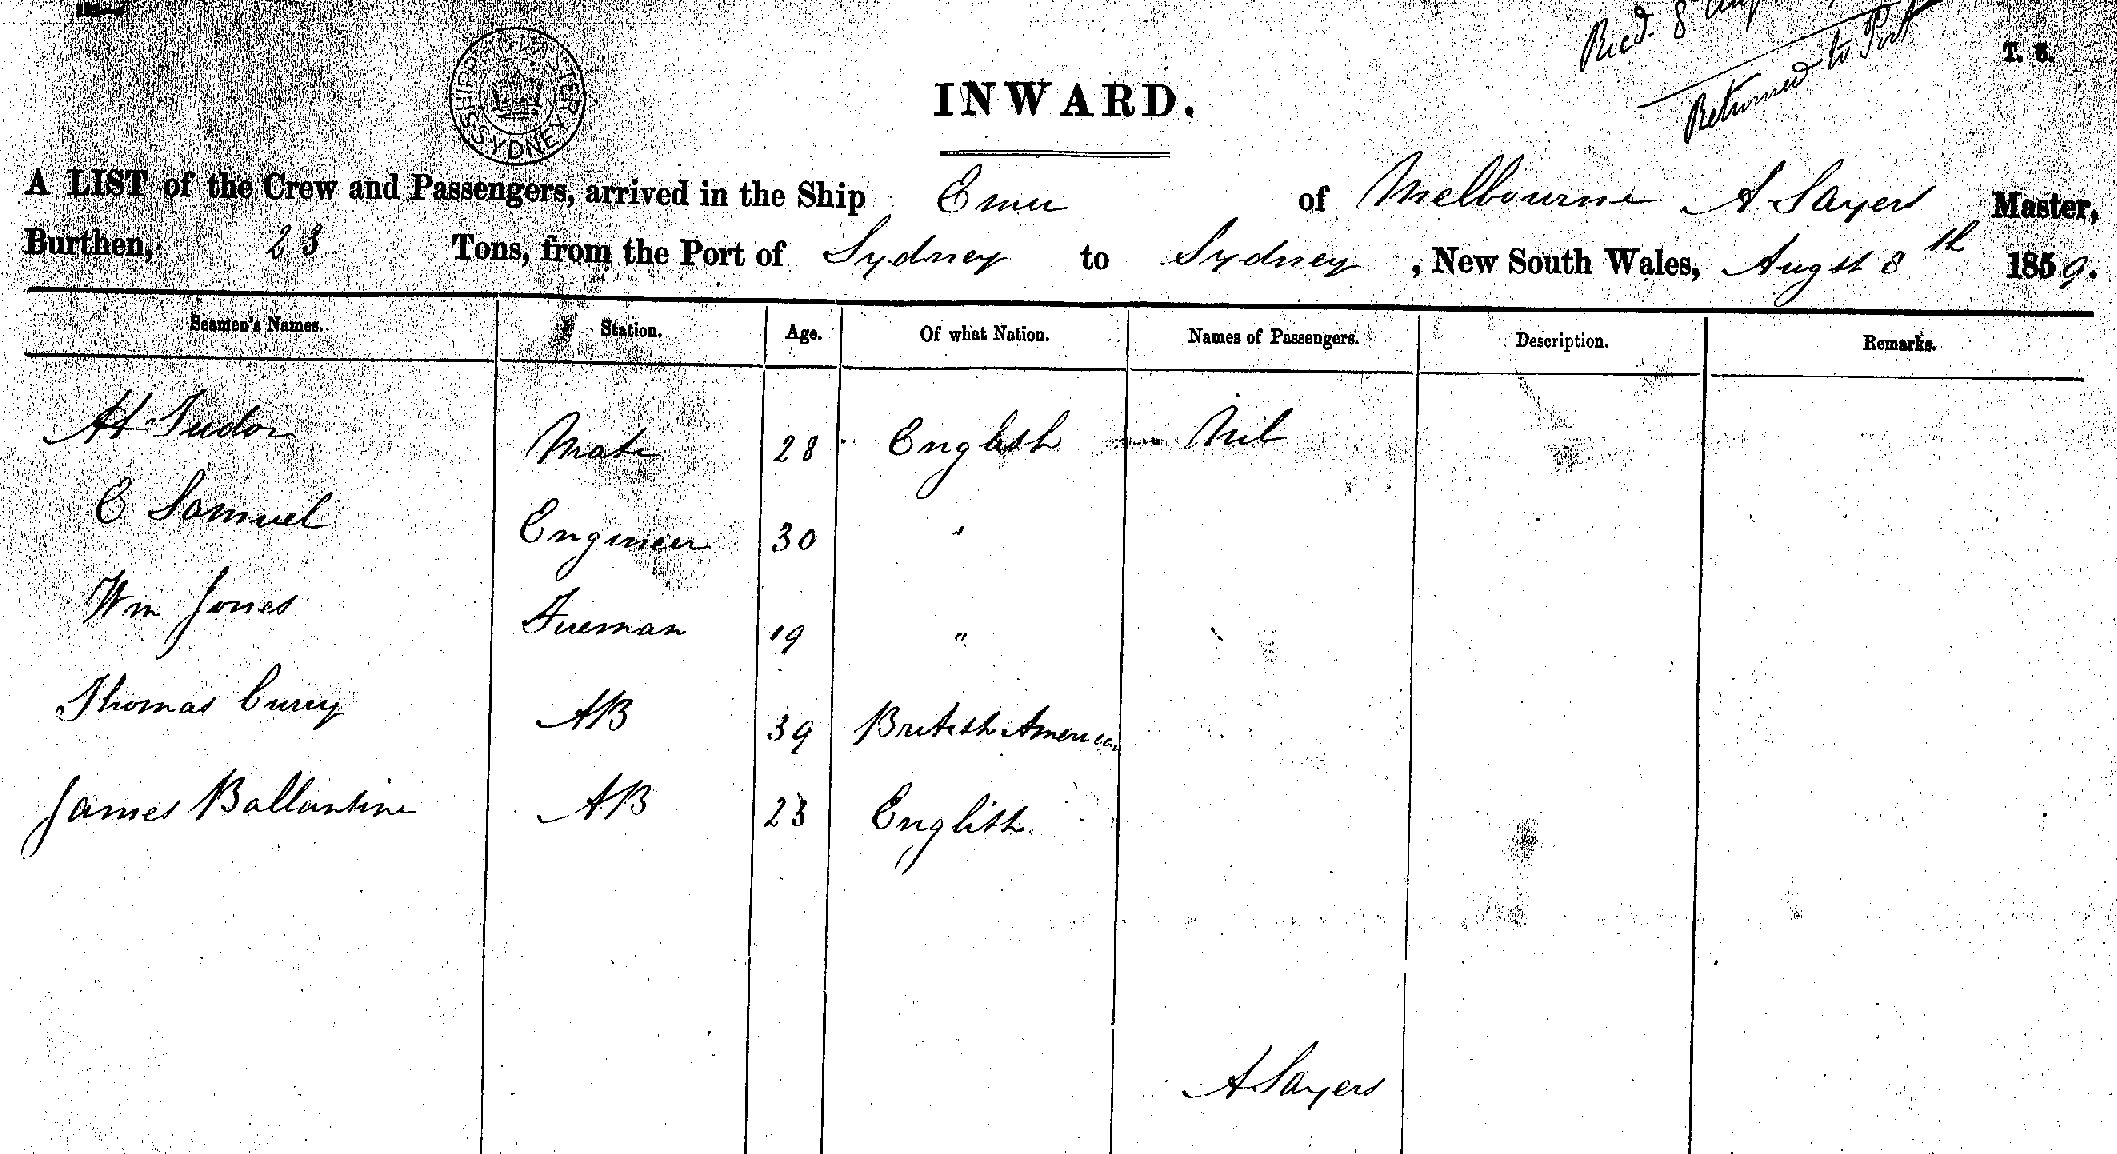 Recd. 8 Aug
Returned to Port
T. S.
SHIPPING MASTER SYDNEY
INWARD.
A LIST of the Crew and Passengers, arrived in the Ship Emu of Melbourne A Sayers Master,
Burthen, 23 Tons, from the Port of Sydney to Sydney, New South Wales, Augst 8th 1859.
Seamen's Names. Station. Age. Of what Nation. Names of Passengers. Description. Remarks.
Tudor Mate 28 English Nil
C Samuel Engineer 30 "
Wm Jones Fireman 19 "
Thomas Curry AB 39 British American
James Ballantine AB 23 English
A Sayers